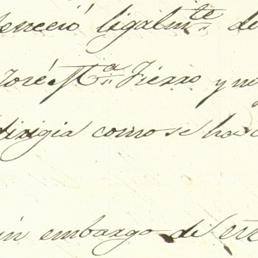 teneció ligalm.te de
José M.a Fierro y no
dirigia como se ha d
in embargo de